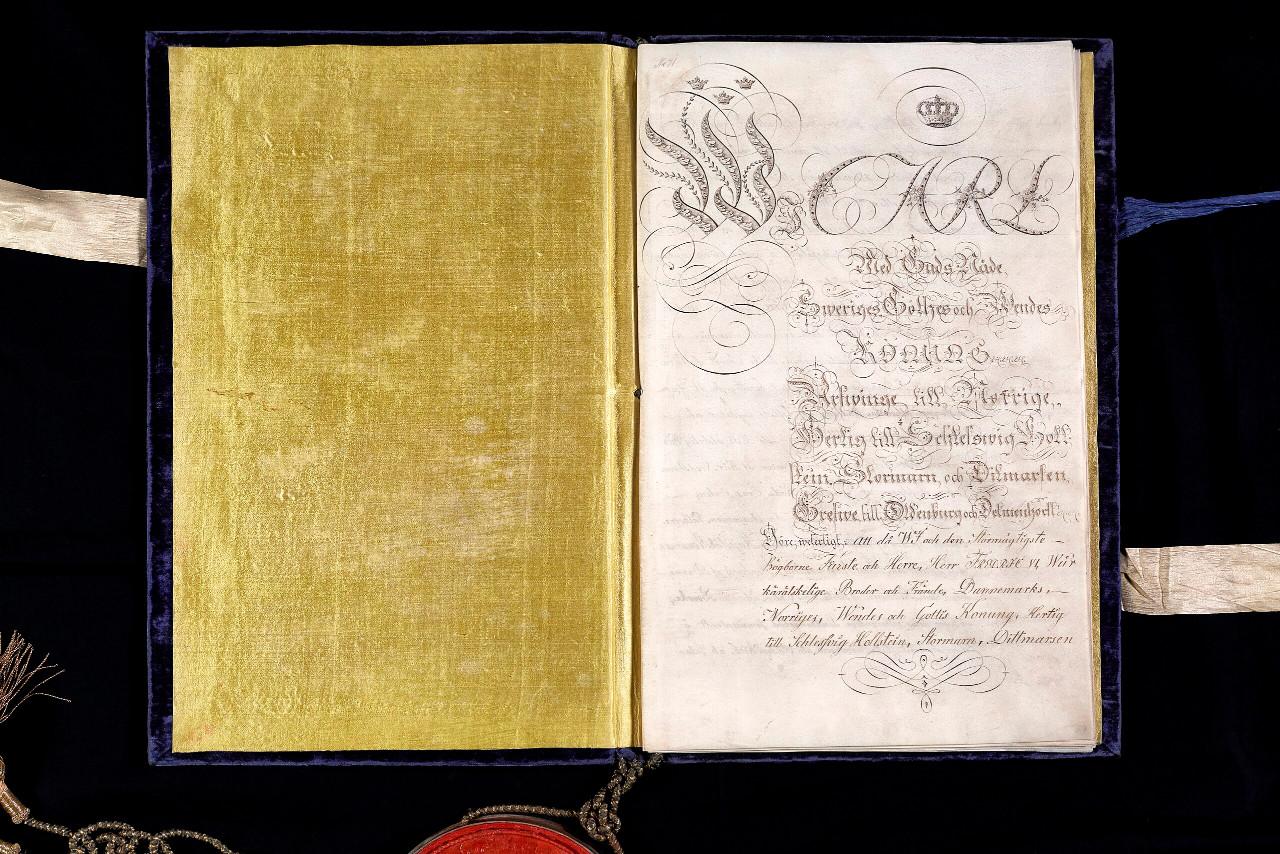 Wi CARL
Med Guds Nåde
Sweriges Göthes och Wendes
Konung
Arfwinge till Norrige,
Hertig till Schleswig Holl-
stein, Stormarn, och Ditmarsen,
Grefwe till Oldenburg och Delmenhorst
Göre, weterligt, att då WI och den Stormägtigste
högborne Furste och Herre, Herr FREDERIC VI, Wår
käraälskelige Broder och Frände, Dannemarks,
Norriges, Wendes och Göthes Konung, Hertig
till Schlesswig Hollstein, Stormarn, Dittmarsen